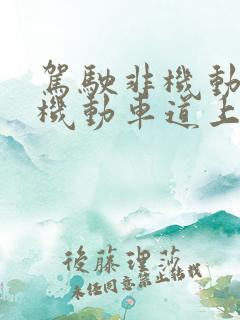 駕駛非機動
機動車道上
後藤理莎
未任同意禁止转载